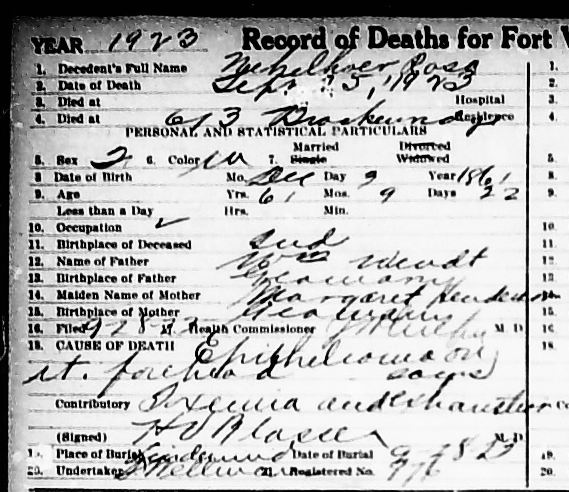 YEAR 1923 Record of Deaths for Fort
1. Decedent's Full Name Rosa 1.
2. Date of Death Sept 25, 1923 2.
3. Died at Hospital 3.
4. Died at 613 Residence 4.
PERSONAL AND STATISTICAL PARTICULARS
Married Divorced
5. Sex 6. Color W 7. Single Widowed 5.
8. Date of Birth Mo. Dec Day 9 Year 1861 8.
9. Age Yrs. 61 Mos. 9 Days 22 9.
Less than a Day Hrs. Min.
10. Occupation ✓ 10.
11. Birthplace of Deceased Ind 11.
12. Name of Father Wm Wendt 12.
13. Birthplace of Father Germany 13.
14. Maiden Name of Mother Margaret Henderson 14.
15. Birthplace of Mother Germany 15.
16. Filed 9 28 23 M. Health Commissioner M. D. 16.
18. CAUSE OF DEATH Epithelioma on 18.
rt. forehead
Contributory and exhaustion
(Signed) M. D.
19. Place of Burial Lindenwood Date of Burial 9 28 23 19.
20. Undertaker 21. Registered No. 20.